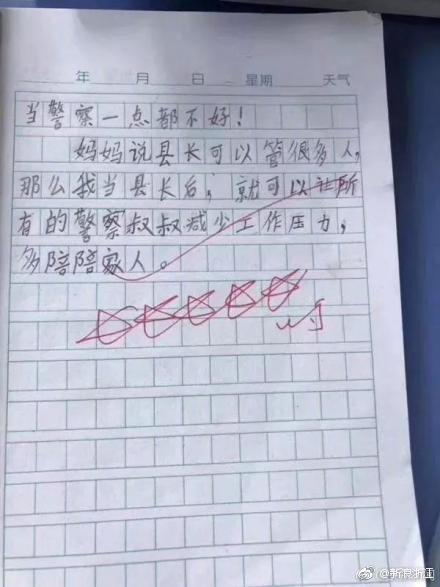 年 月 日 星期 天气
当警察一点都不好！
妈妈说县长可以管很多人，
那么我当县长后，就可以让所
有的警察叔叔减少工作压力，
多陪陪家人。
@新浪浙江